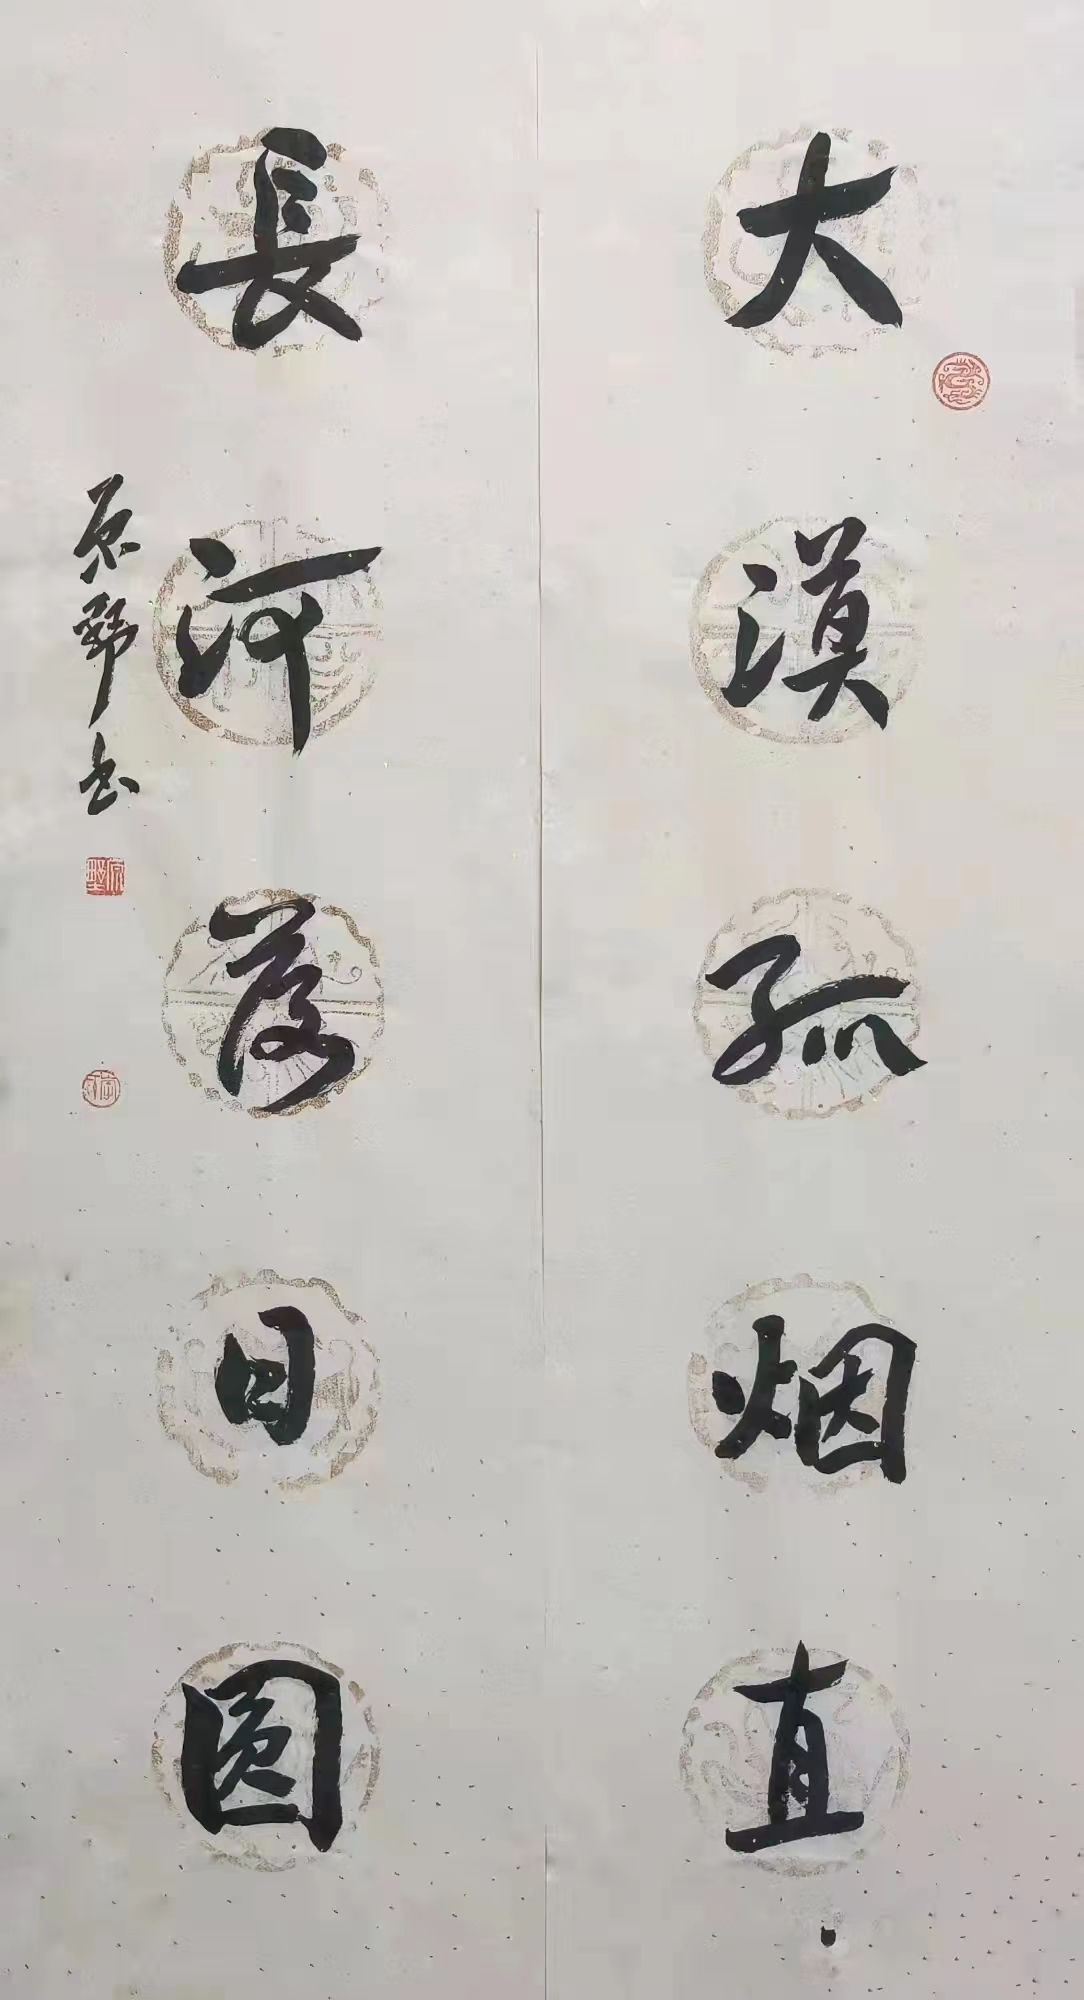 大漠孤烟直
長河落日圆